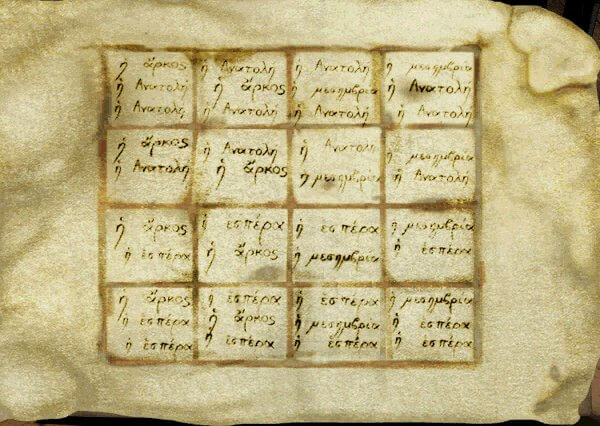 ἡ ἄρκος
ἡ Ανατολή
ἡ Ανατολή
ἡ Ανατολή
ἡ ἄρκος
ἡ Ανατολή
ἡ Ανατολή
ἡ μεσημβρία
ἡ Ανατολή
ἡ μεσημβρία
ἡ Ανατολή
ἡ Ανατολή
ἡ ἄρκος
ἡ Ανατολή
ἡ Ανατολή
ἡ ἄρκος
ἡ Ανατολή
ἡ μεσημβρία
ἡ μεσημβρία
ἡ Ανατολή
ἡ ἄρκος
ἡ ἑσπέρα
ἡ ἑσπέρα
ἡ ἄρκος
ἡ ἑσπέρα
ἡ μεσημβρία
ἡ μεσημβρία
ἡ ἑσπέρα
ἡ ἄρκος
ἡ ἑσπέρα
ἡ ἑσπέρα
ἡ ἑσπέρα
ἡ ἄρκος
ἡ ἑσπέρα
ἡ ἑσπέρα
ἡ μεσημβρία
ἡ ἑσπέρα
ἡ μεσημβρία
ἡ ἑσπέρα
ἡ ἑσπέρα